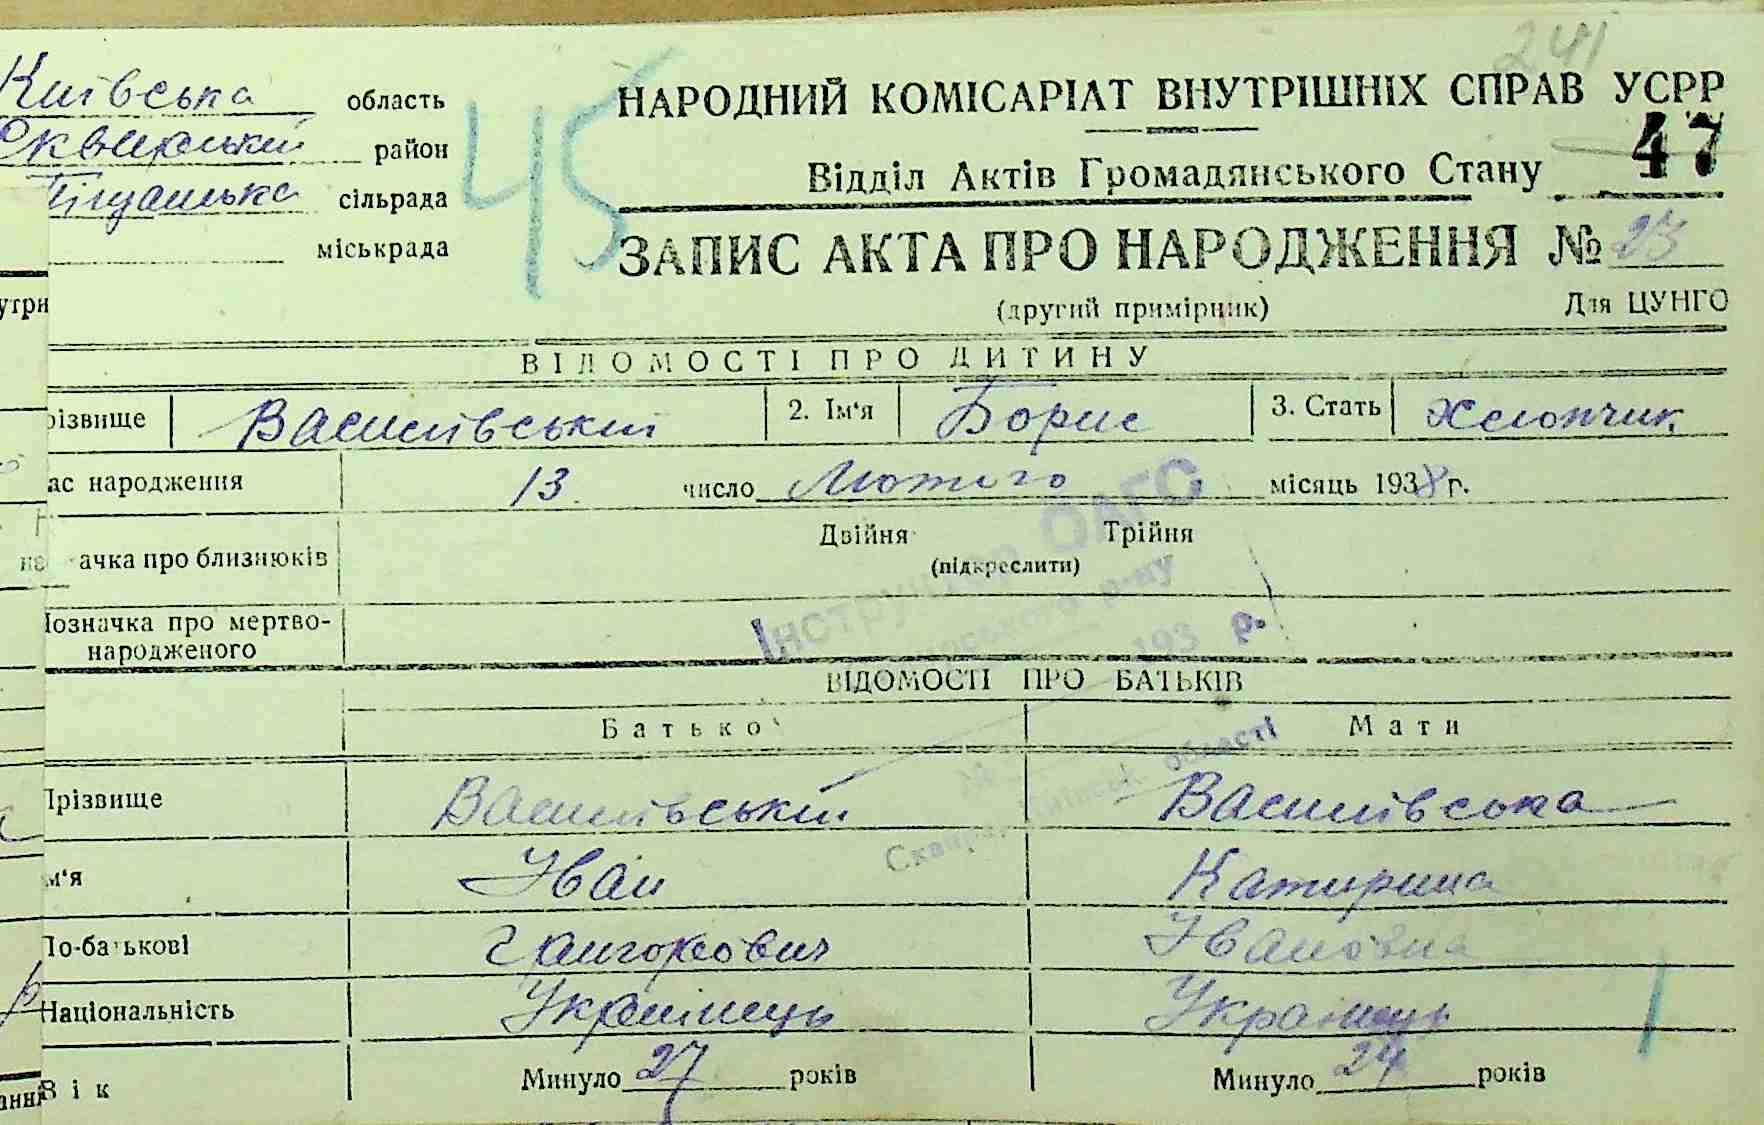 241
Київська область
Сквирський район
сільрада
міськрада
45
НАРОДНИЙ КОМІСАРІАТ ВНУТРІШНІХ СПРАВ УСРР
Відділ Актів Громадянського Стану 47
ЗАПИС АКТА ПРО НАРОДЖЕННЯ № 23
(другий примірник) Для ЦУНГО
утри
ВІДОМОСТІ ПРО ДИТИНУ
різвище Василівський 2. Ім'я Борис 3. Стать Хлопчик
ас народження 13 число Лютого місяць 1938 г.
Двійня Трійня
ачка про близнюків (підкреслити)
Інструктор ОАГС
р-ну
193 р.
Позначка про мертво-
народженого
ВІДОМОСТІ ПРО БАТЬКІВ
Батько Мати
№
Сквира, Київськ. області
Прізвище Василівський Василівська
м'я Іван Катирина
По-батькові Івановна
Національність Українець Українець
Вік Минуло 27 років Минуло 24 років